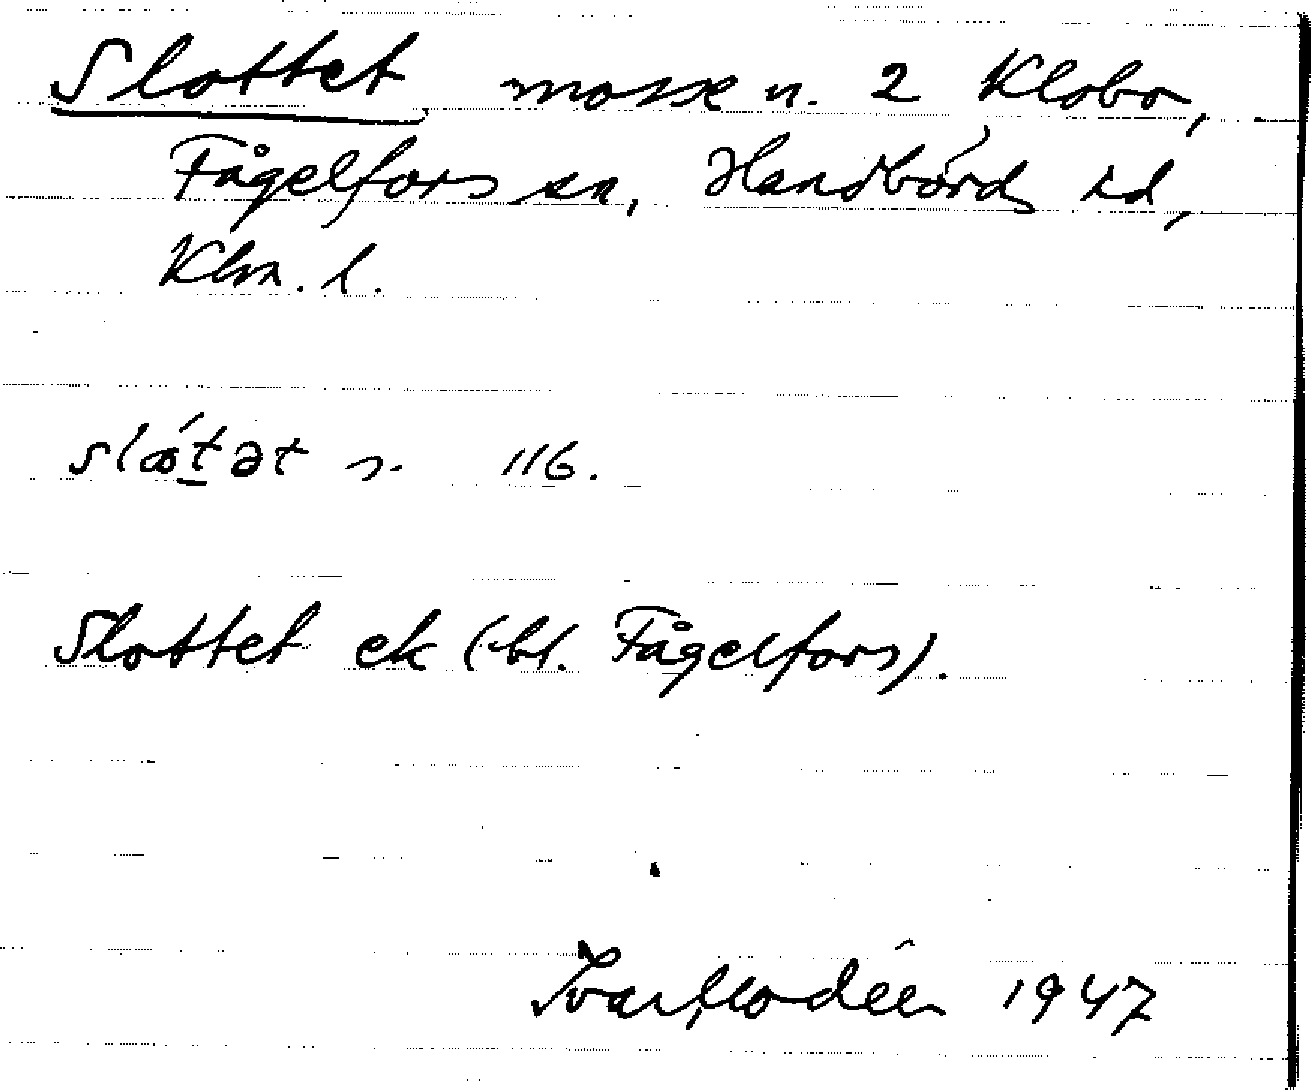 Slottet, mosse n. 2 Klobo,
Fågelfors sn, Handbörds hd,
Klm. l.
n. 116.
Slottet ek (bl. Fågelfors).
Ivar Modéer 1947